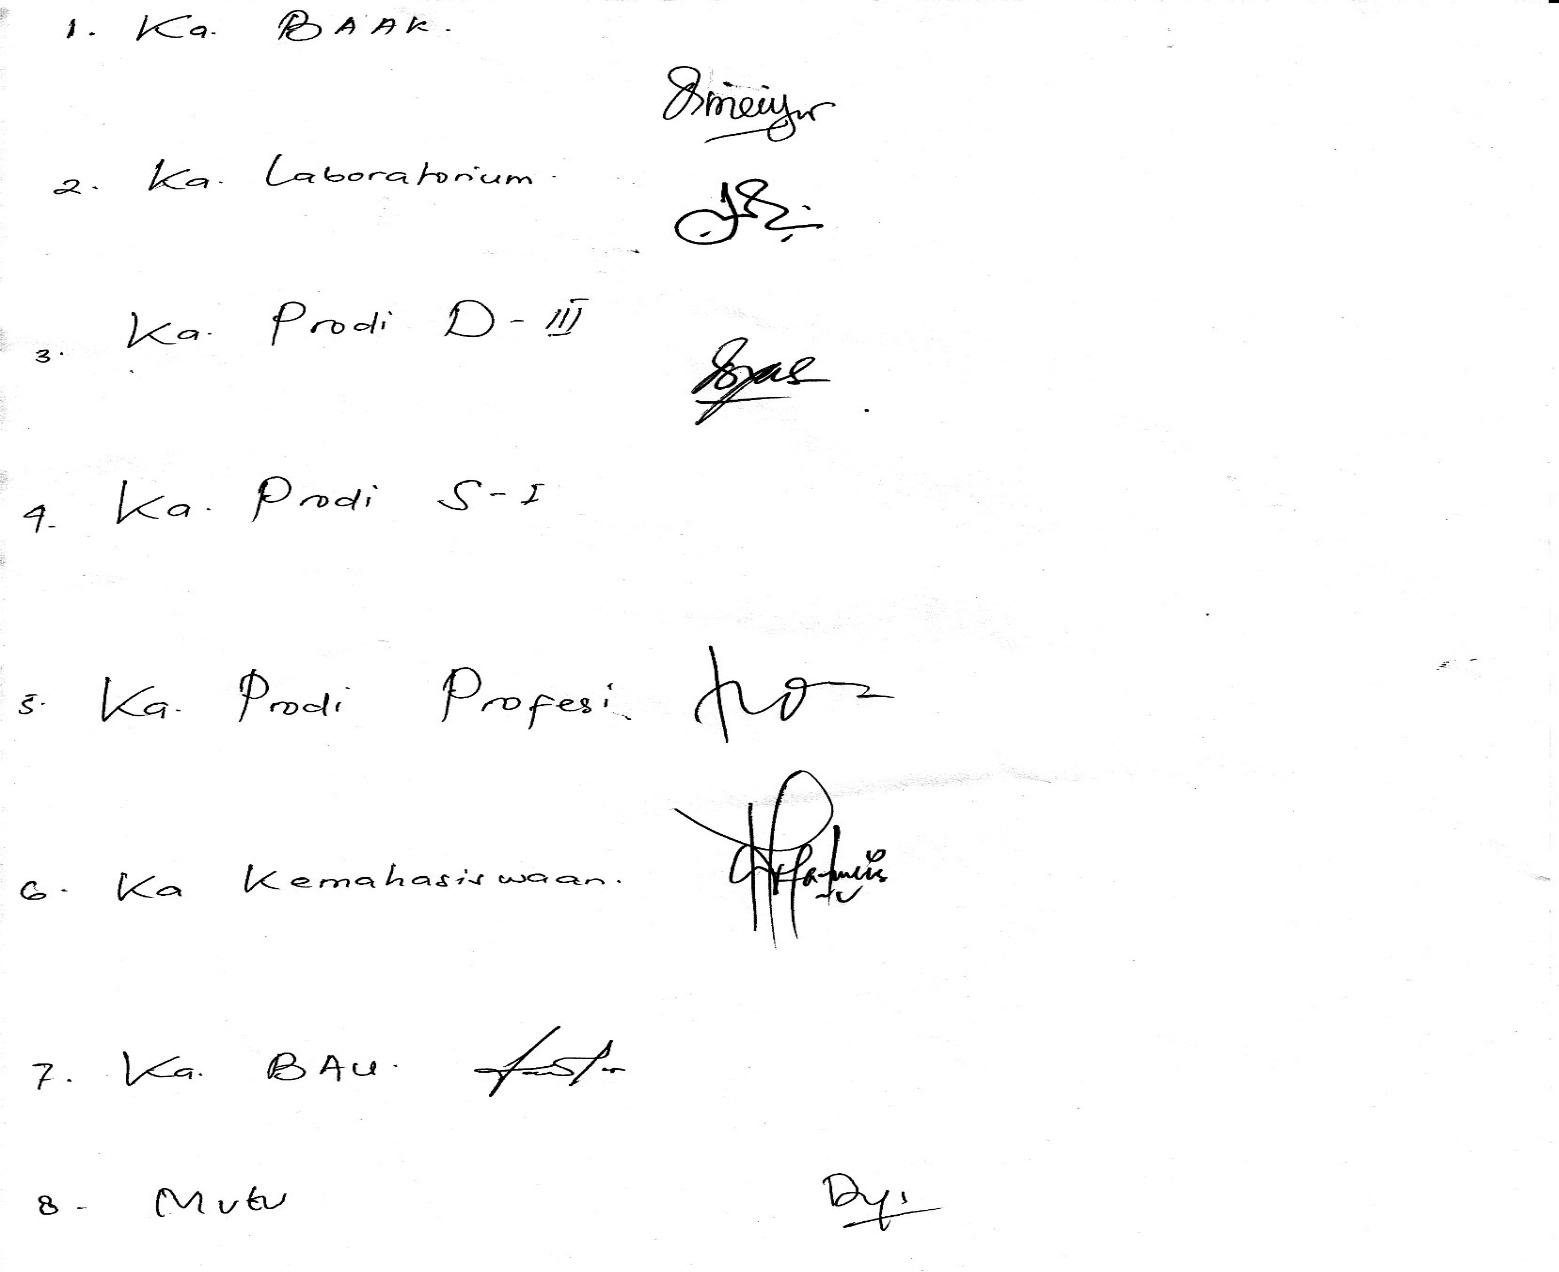 1. Ka. BAAK.
2. Ka. Laboratorium.
3. Ka. Prodi D-III
4. Ka. Prodi S-I
5. Ka. Prodi Profesi
6. Ka Kemahasiswaan.
7. Ka. BAU.
8- Mutu